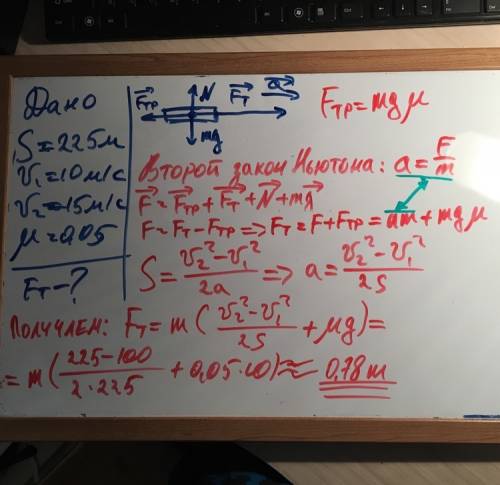 Дано
S = 225м
v₁ = 10м/с
v₂ = 15м/с
μ = 0,05
Fт - ?
Fтр N Fт a
mg
Fтр = mgμ
Второй закон Ньютона: a = F/m
F = Fтр + Fт + N + mg
F = Fт - Fтр => Fт = F + Fтр = am + mgμ
S = (v₂² - v₁²)/2a => a = (v₂² - v₁²)/2S
Получаем: Fт = m( (v₂² - v₁²)/2S + μg) =
= m( (225-100)/(2·225) + 0,05·10) ≈ 0,78m